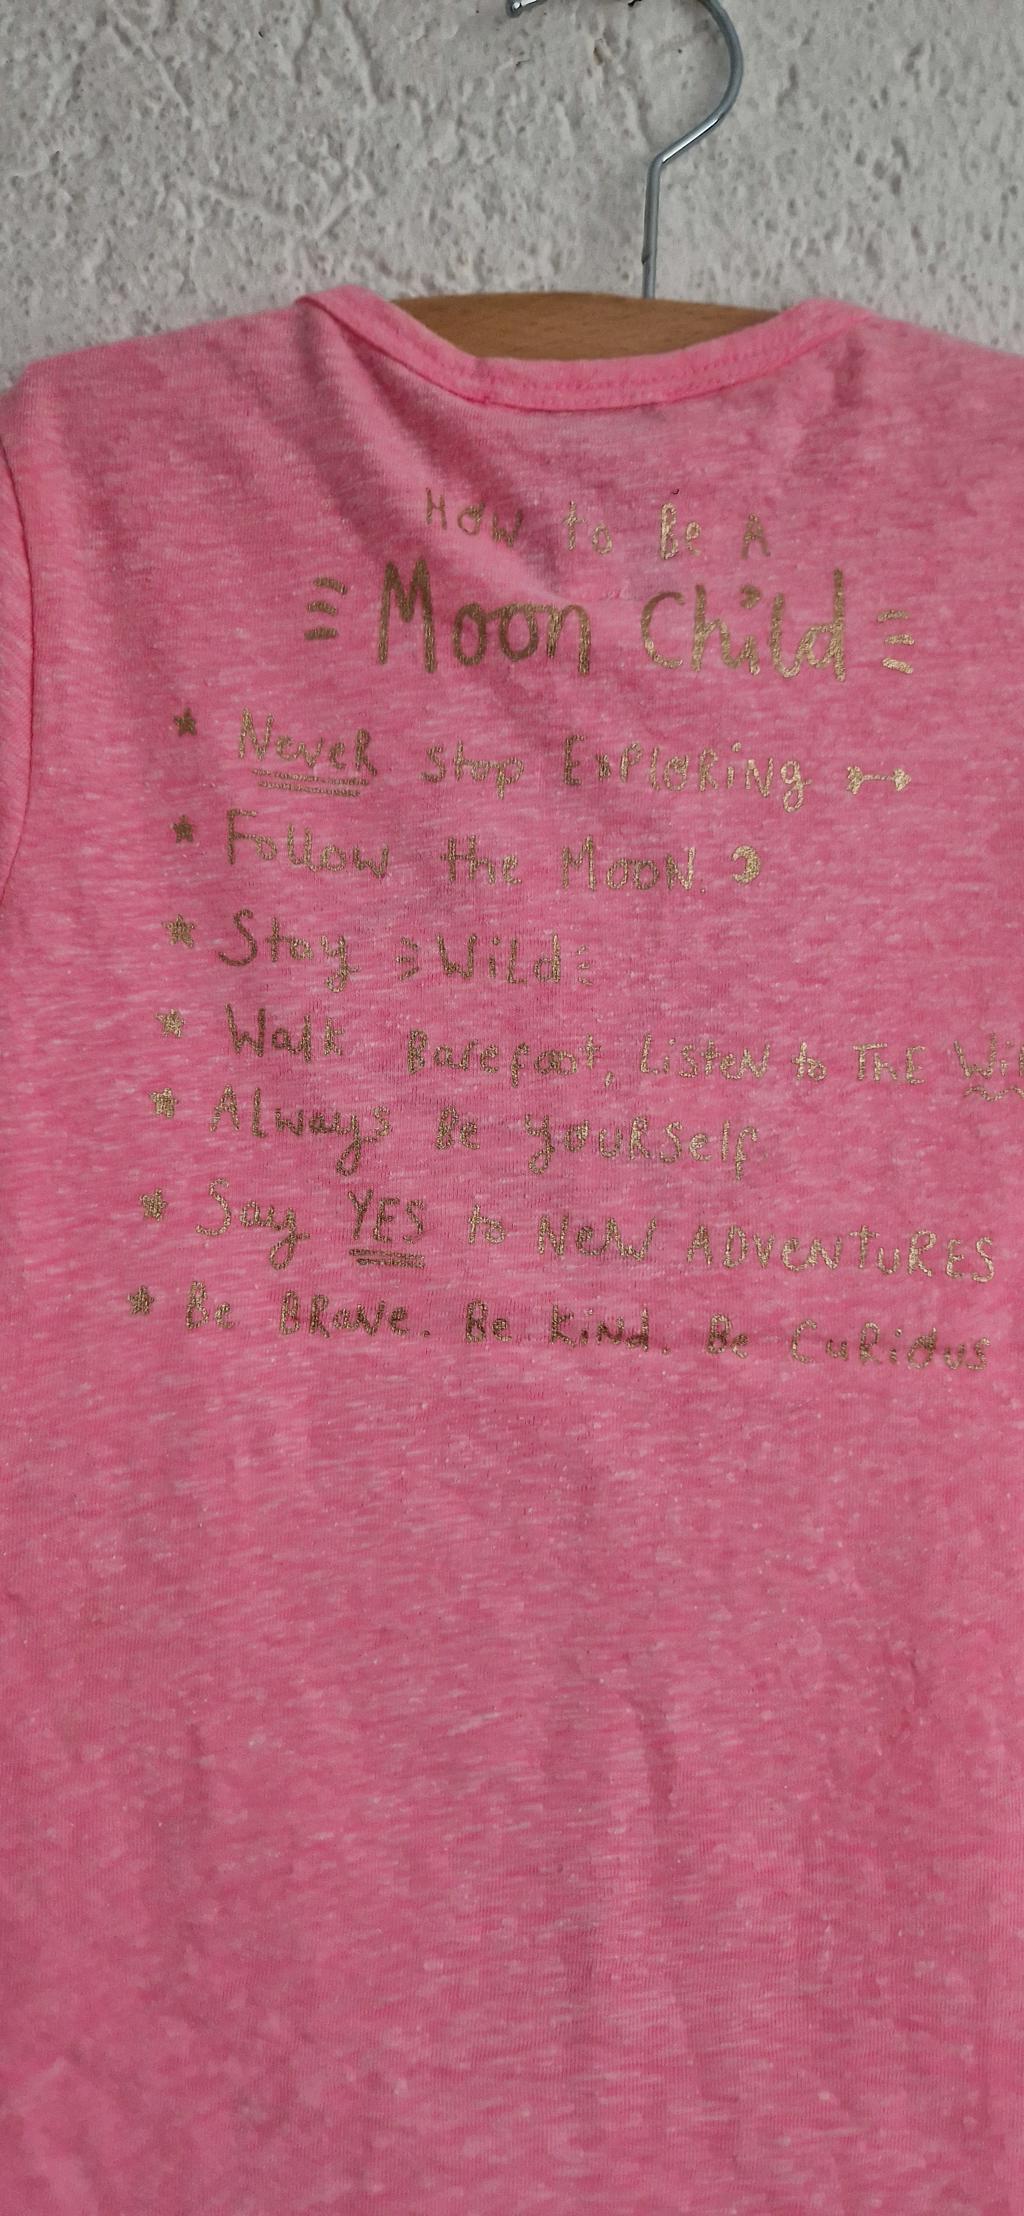 How to Be A
Moon Child
Never Stop ExPLORiNg
Follow the MOON.
Stay WiLd
Walk Barefoot, Listen to THE
Always Be yOURSelf
Say YES to NeW ADVENTURES
Be BRaVe. Be KiNd. Be CuRiOus